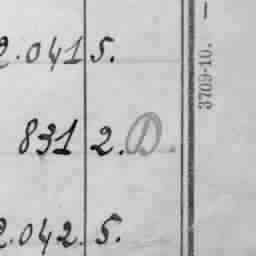 2.041 5.
831 2. D.
2.042. 5.
3709-10. —